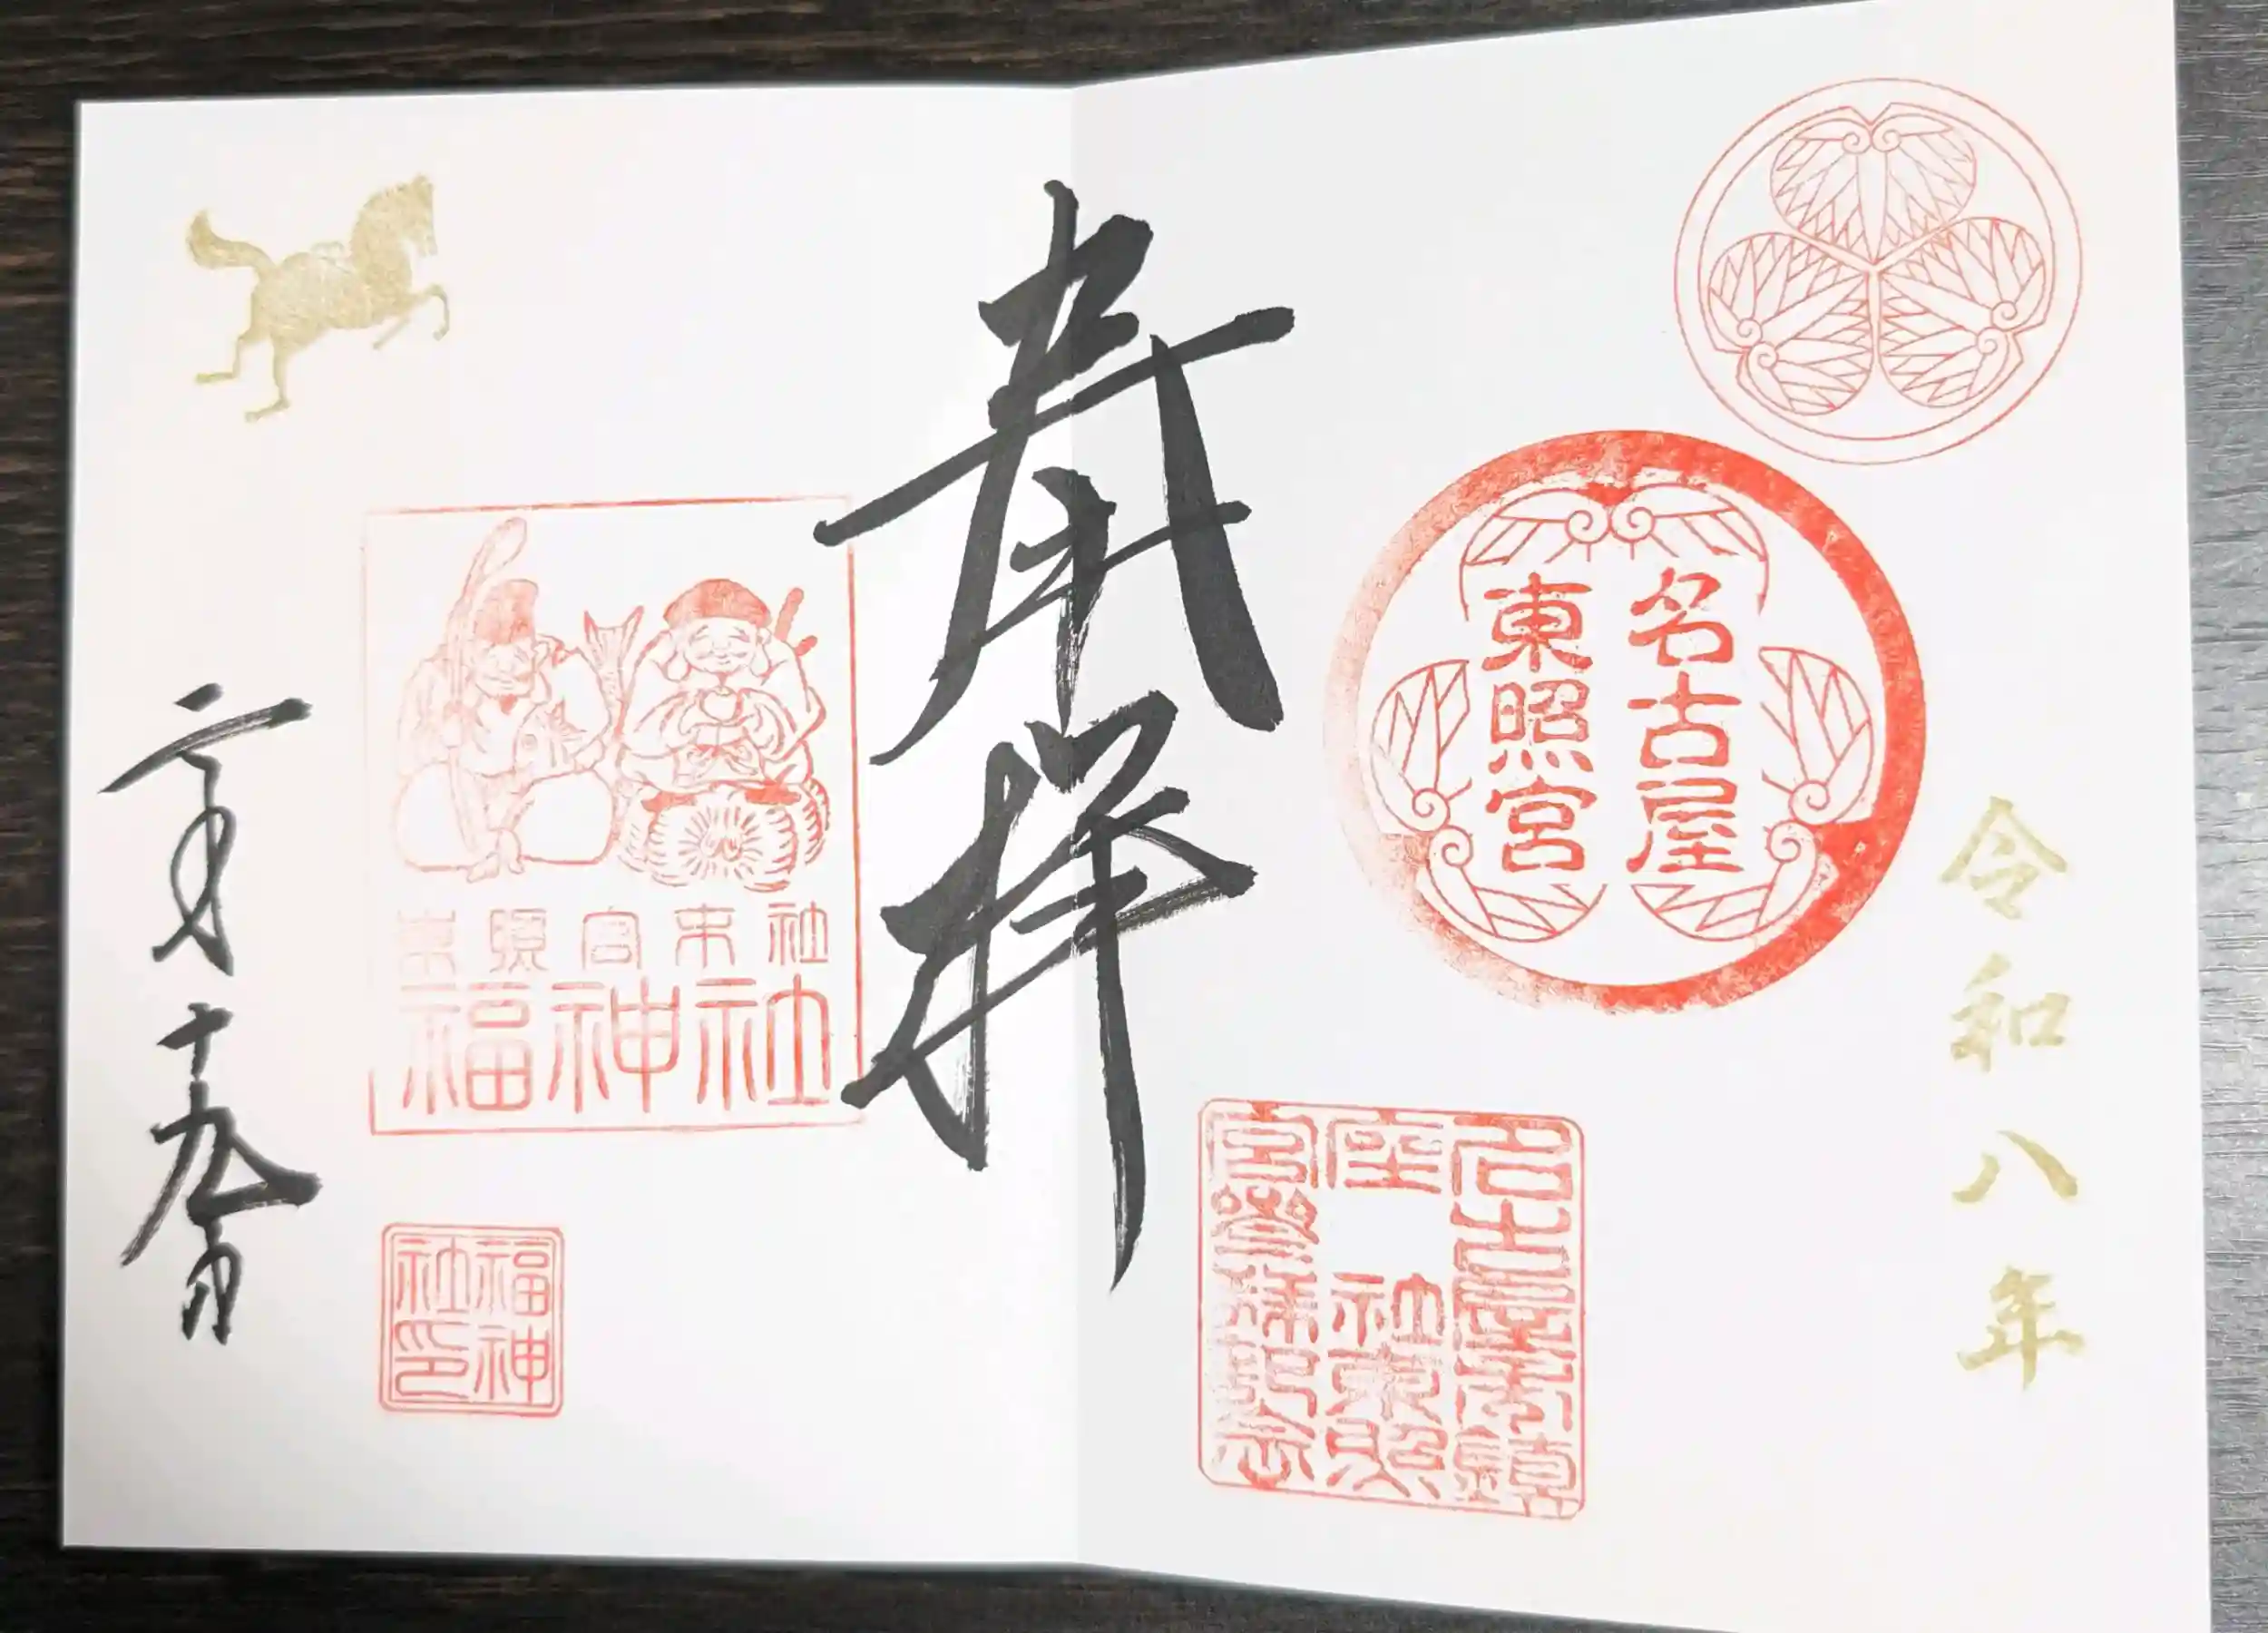 令和八年
名古屋
東照宮
名古屋
座社東照
宮參拜記念
奉拝
東照宮末社
福神社
福神
社印
月十九日